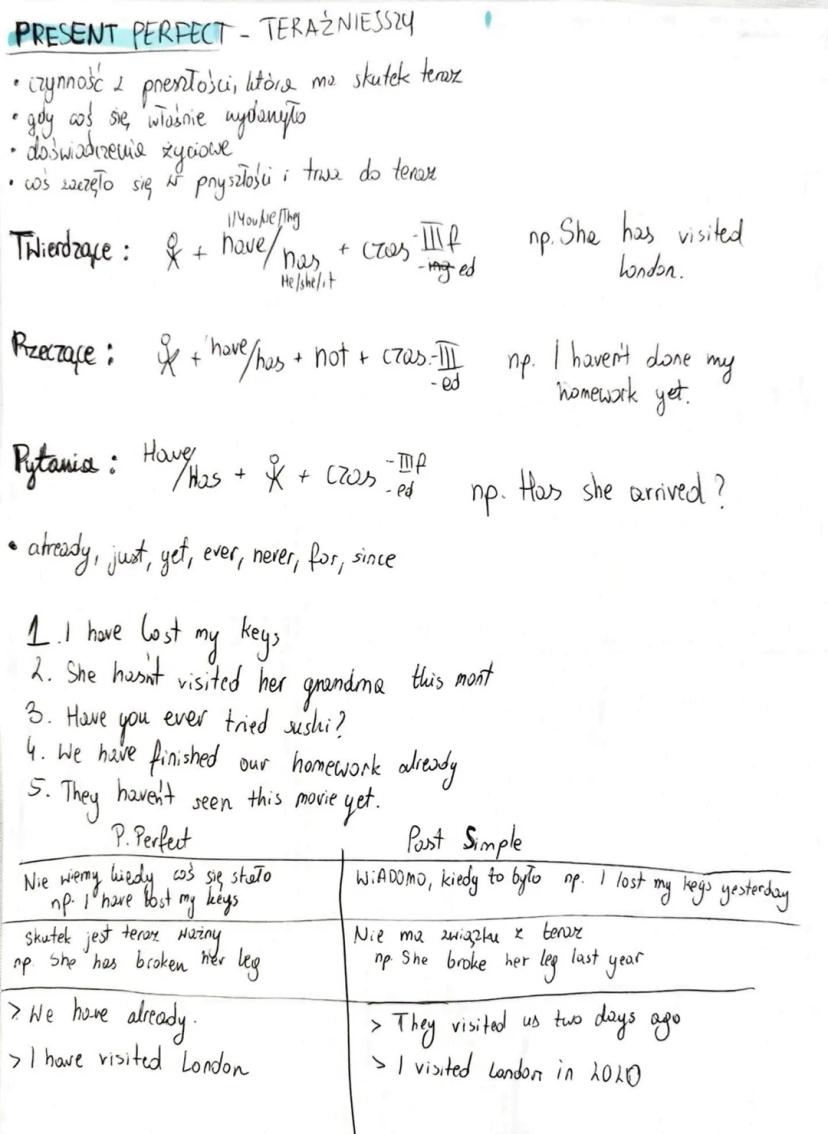 PRESENT PERFECT - TERAŹNIESSZY
• czynność z przeszłości, która ma skutek teraz
• gdy coś się właśnie wydarzyło
• doświadczenia życiowe
• coś zaczęło się w przyszłości i trwa do teraz
I/You/We/They
Twierdzące: + have/has + czas - III f np. She has visited
He/she/it - ing ed London.
Przeczące: + have/has + not + czas - III np. I haven't done my
- ed homework yet.
Pytania: Have/Has + + czas - III f
- ed np. Has she arrived?
• already, just, yet, ever, never, for, since
1. I have lost my keys
2. She hasn't visited her grandma this mont
3. Have you ever tried sushi?
4. We have finished our homework already
5. They haven't seen this movie yet.
P. Perfect Past Simple
Nie wiemy kiedy coś się stało WiADOMO, kiedy to było np. I lost my keys yesterday
np. I have lost my keys
Skutek jest teraz ważny Nie ma związku z teraz
np. She has broken her leg np She broke her leg last year
> We have already. > They visited us two days ago
> I have visited London > I visited London in 2020